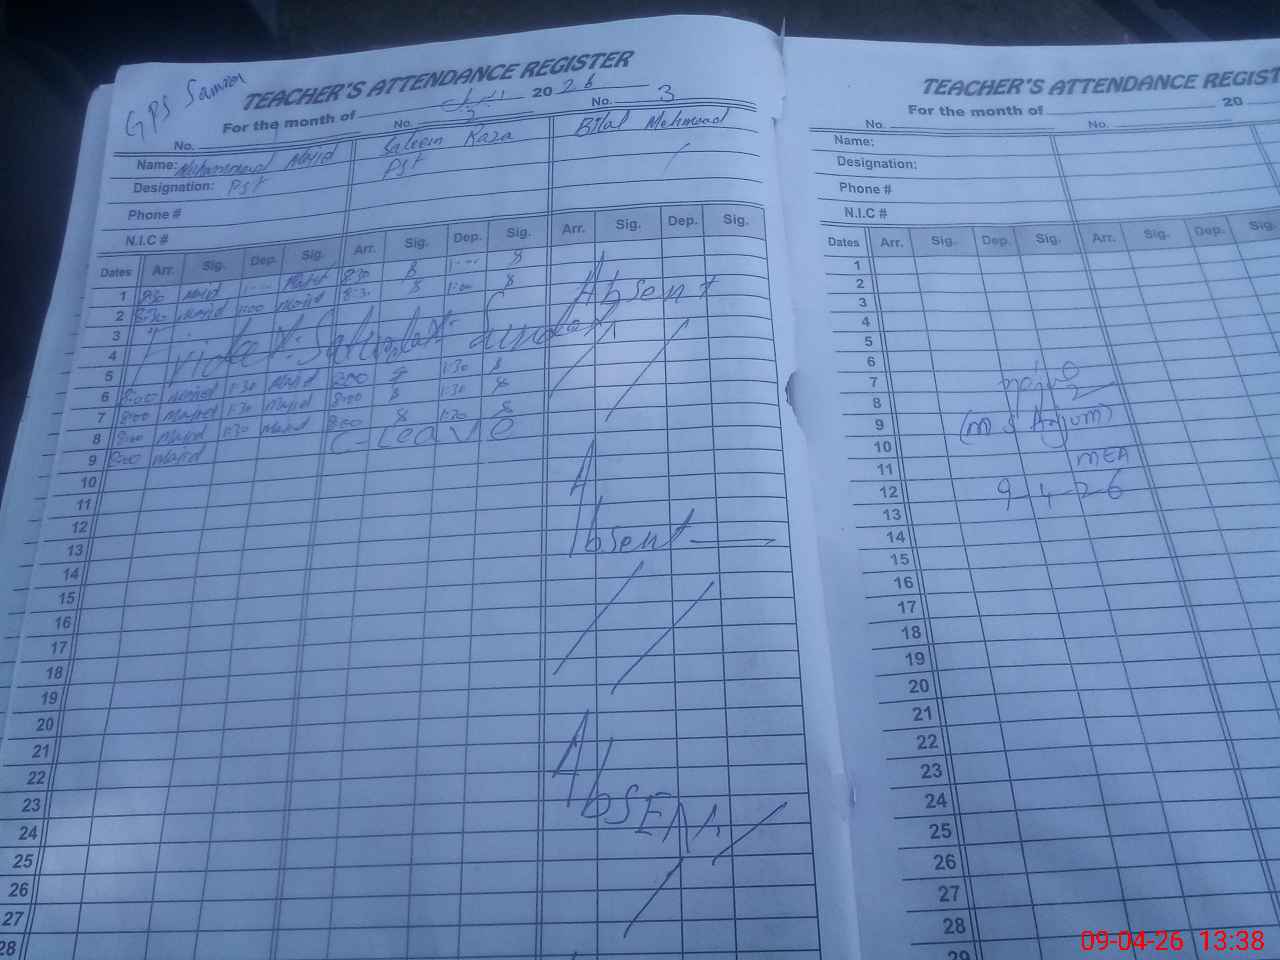 GPS Samror
TEACHER'S ATTENDANCE REGISTER
For the month of 2026
No. 1 No. 2 No. 3
Name: Mohammad Majid Saleem Raza Bilal Mehmood
Designation: Pst Pst
Phone #
N.I.C #
Dates Arr. Sig. Dep. Sig. Arr. Sig. Dep. Sig. Arr. Sig. Dep. Sig.
1 8:30 Majid Majid 8:30
2 8:30 Majid 1:00 Majid 8:30 1:00
Absent
3
4 Friday: Saturday: Sunday
5
6 8:00 Majid 1:30 Majid 8:00 1:30
7 8:00 Majid 1:30 Majid 8:00 1:30
8 8:00 Majid 1:30 Majid 8:00 1:30
9 8:00 Majid C-Leave
10
11
12
13 Absent
14
15
16
17
18
19
20
21
22
23 Absent
24
25
26
27
28
TEACHER'S ATTENDANCE REGIST
For the month of 20
No. No.
Name:
Designation:
Phone #
N.I.C #
Dates Arr. Sig. Dep. Sig. Arr. Sig. Dep. Sig.
1
2
3
4
5
6
7
8
9 (M S Anjum)
10
11 MEA
12 9-4-26
13
14
15
16
17
18
19
20
21
22
23
24
25
26
27
28
29
09-04-26 13:38